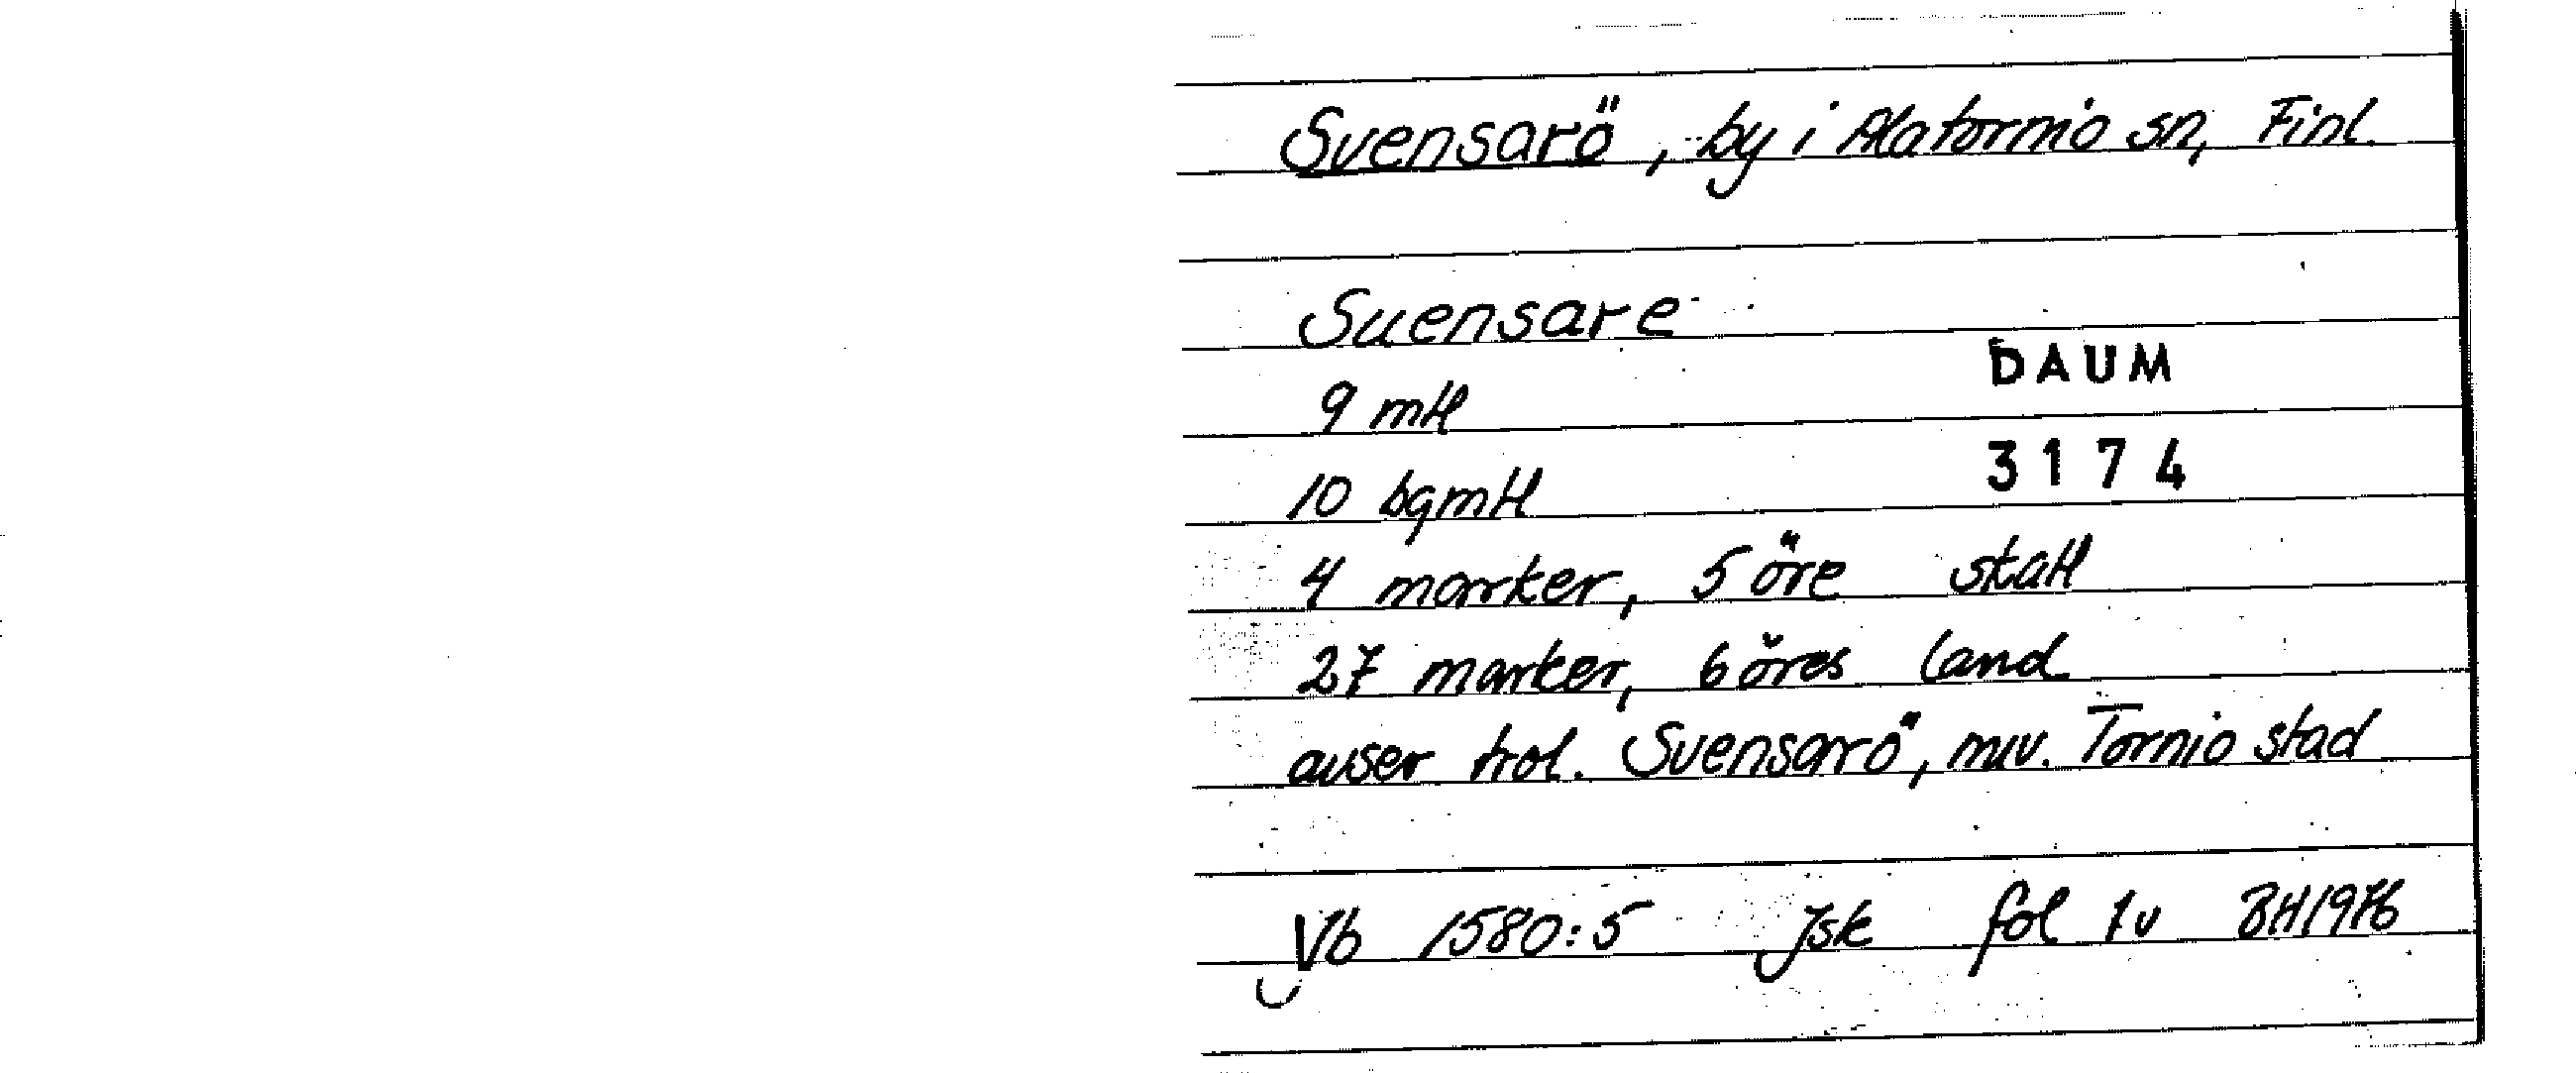 Svensarö, by i Alatornio sn, Finl.
Suensare
DAUM
9 mtl
3174
10 bgmtl
4 marker, 5 öre skatt
27 marker, 6 öres land
avser trol. Svensarö, nuv. Tornio stad
Vb 1580:5 Jsk fol 1v BH1976